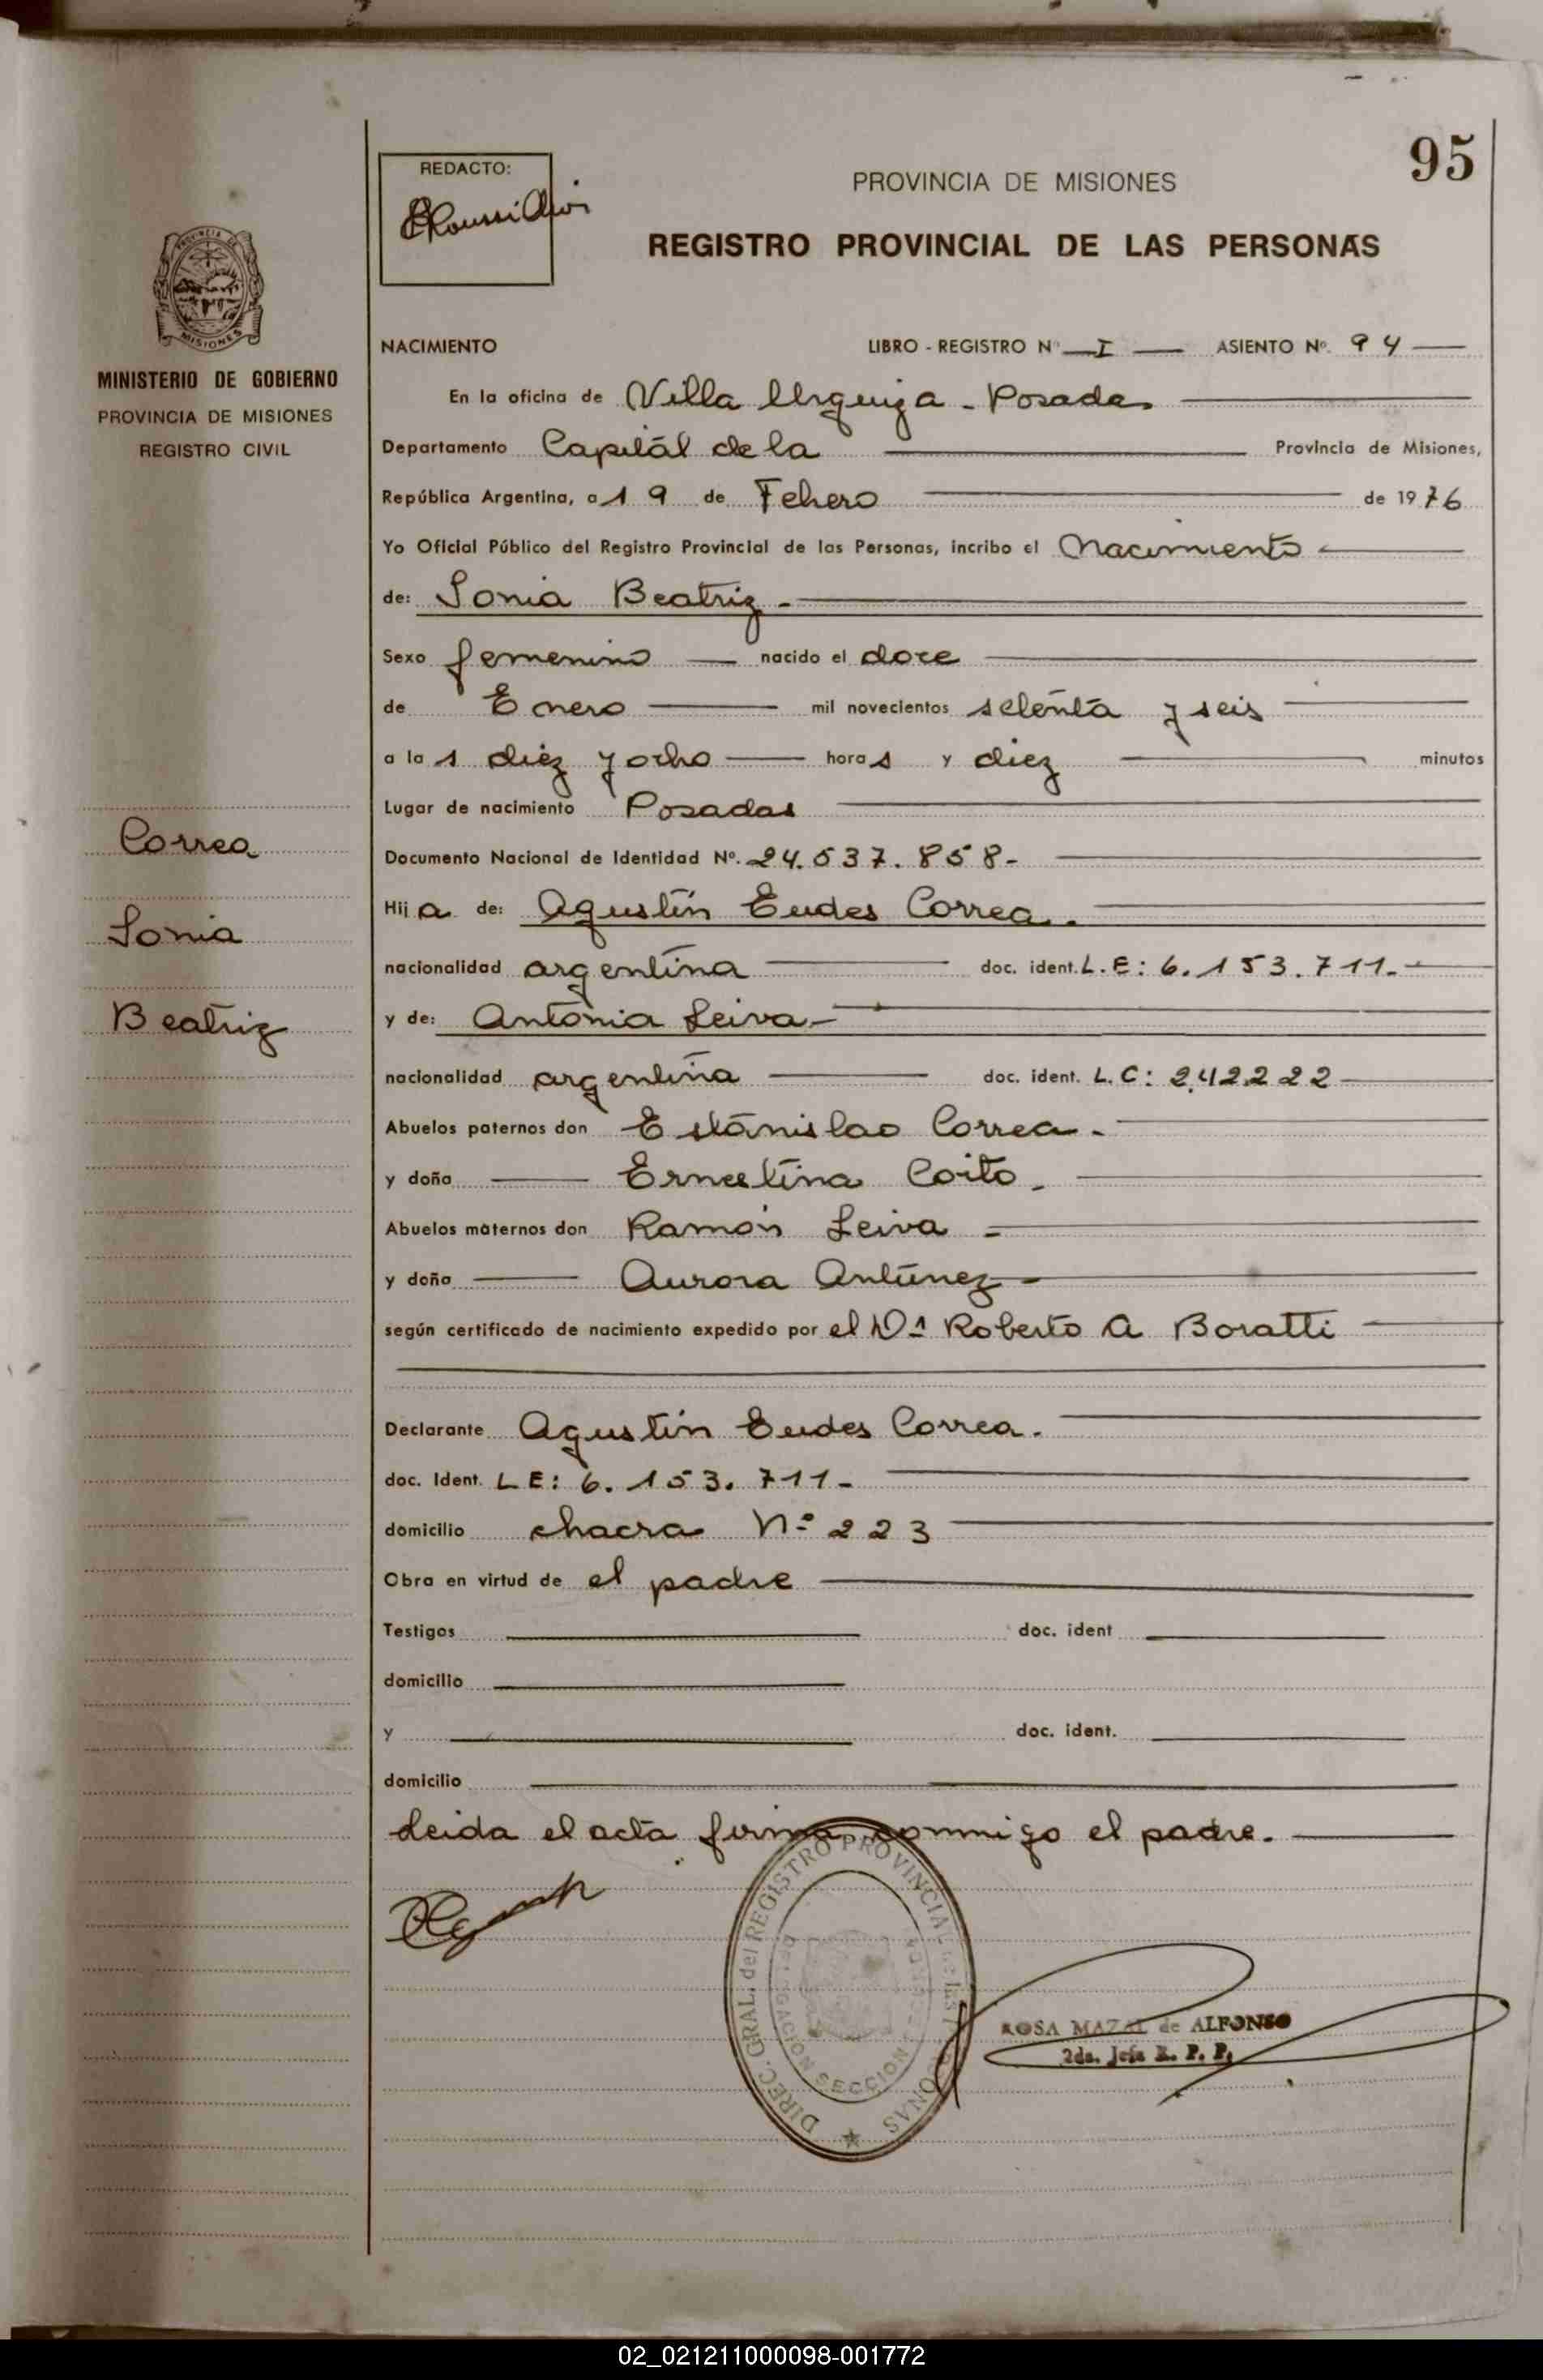 95
REDACTO:
PROVINCIA DE MISIONES
REGISTRO PROVINCIAL DE LAS PERSONAS
PROVINCIA DE
MISIONES
MINISTERIO DE GOBIERNO
PROVINCIA DE MISIONES
REGISTRO CIVIL
NACIMIENTO LIBRO - REGISTRO Nº I ASIENTO Nº. 94
En la oficina de Villa Urquiza - Posadas
Departamento Capital de la Provincia de Misiones,
República Argentina, a 19 de Febrero de 1976
Yo Oficial Público del Registro Provincial de las Personas, incribo el Nacimiento
de: Sonia Beatriz -
Sexo femenino nacido el doce
de Enero mil novecientos setenta y seis
a las diez y ocho horas y diez minutos
Lugar de nacimiento Posadas
Correa
Documento Nacional de Identidad Nº. 24.537.858-
Hija de: Agustín Eudes Correa.
Sonia
nacionalidad argentina doc. ident. L.E: 6.153.711.-
y de: Antonia Leiva-
Beatriz
nacionalidad argentina doc. ident. L.C: 2.42222
Abuelos paternos don Estanislao Correa.
y doña Ernestina Coito.
Abuelos maternos don Ramón Leiva =
y doña Aurora Antúnez -
según certificado de nacimiento expedido por el Dr Roberto A Boratti
Declarante Agustín Eudes Correa.
doc. Ident. LE: 6.153.711-
domicilio chacra Nº 223
Obra en virtud de el padre
Testigos doc. ident
domicilio
y doc. ident.
domicilio
Leida el acta firma conmigo el padre.
DIREC. GRAL. del REGISTRO PROVINCIAL de LAS PERSONAS
DELEGACION SECCION
ROSA MAZAL de ALFONSO
2da. Jefa R. P. P.
02_021211000098-001772